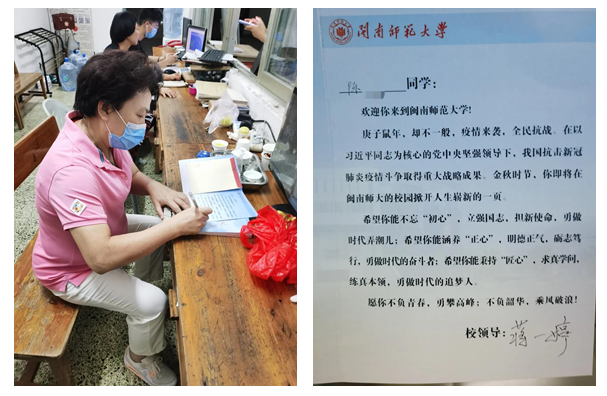 闽南师范大学
陈 同学:
欢迎你来到闽南师范大学!
庚子鼠年,却不一般,疫情来袭,全民抗战。在以
习近平同志为核心的党中央坚强领导下,我国抗击新冠
肺炎疫情斗争取得重大战略成果。金秋时节,你即将在
闽南师大的校园掀开人生崭新的一页。
希望你能不忘“初心”,立强国志,担新使命,勇做
时代弄潮儿;希望你能涵养“正心”,明德正气,砺志笃
行,勇做时代的奋斗者;希望你能秉持“匠心”,求真学问,
练真本领,勇做时代的追梦人。
愿你不负青春,勇攀高峰;不负韶华,乘风破浪!
校领导:蒋一婷